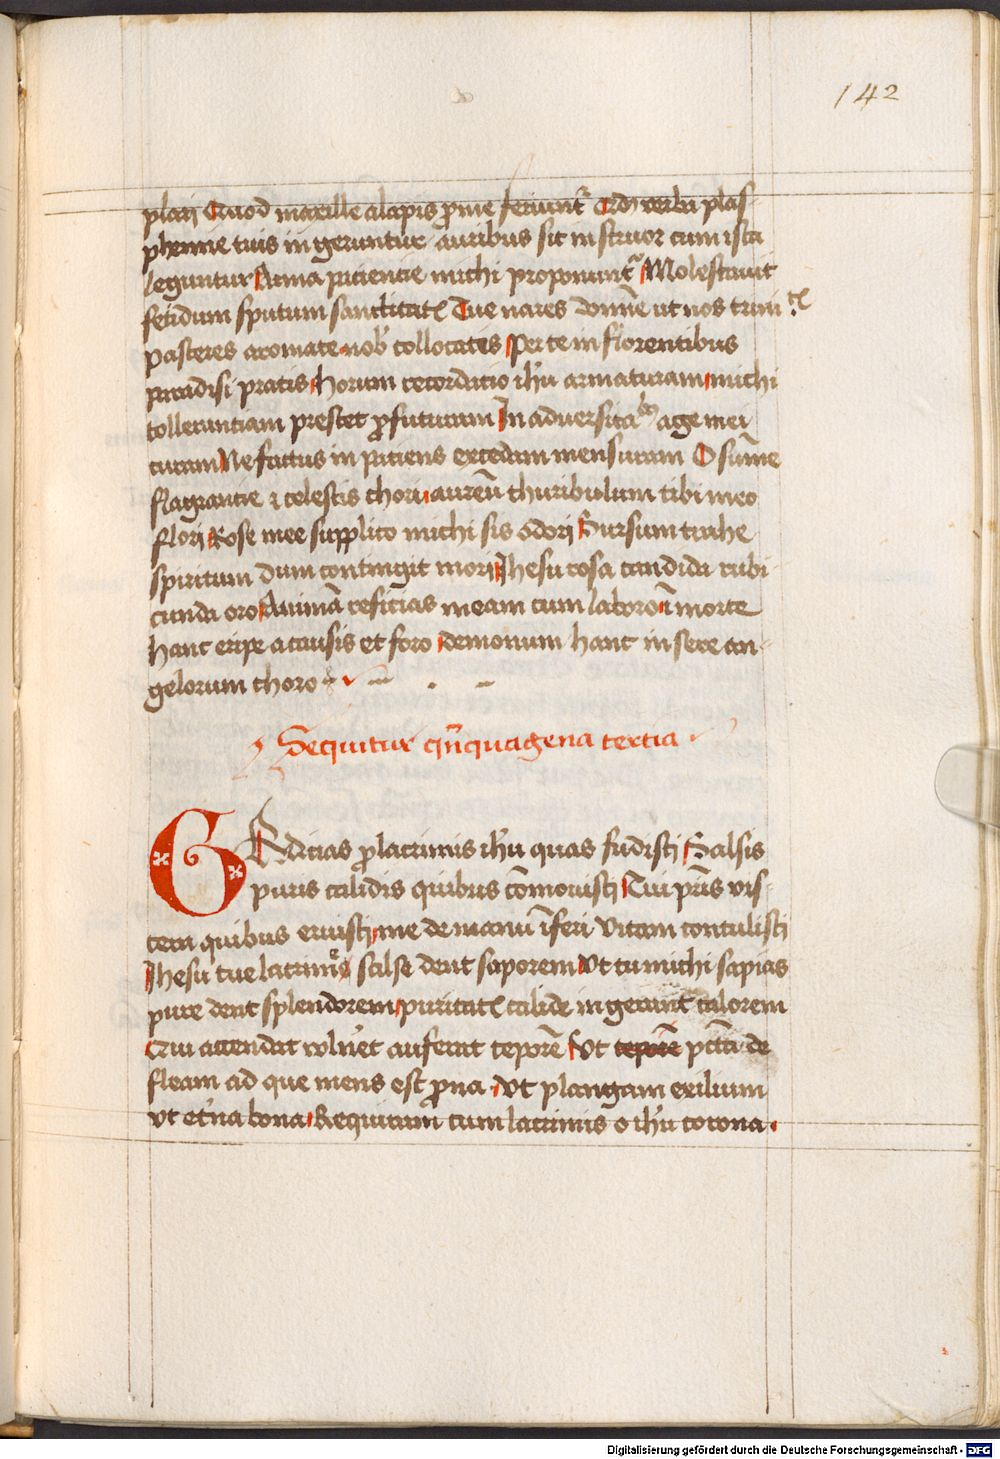 142
plari Quod maxille alapis ꝓ me feriunt᷑ Qd verba plas-
phemie tuis in geruntur auribus sit in struor cum ista
leguntur Arma paciencie michi proponunt᷑ Molestauit
fetidum sputum sanctitatꝭ Tue nares domīe ut nos trinitꝭ
pasceres aromate nob̛ collocates Per te in florentibus
paradisi pratis horum recordatio ih̄u armaturam michi
tolleranciam prestet ꝓfuturam In aduersitabꝫ age mei
curam Ne factus in paciens excedam mensuram O sūme
flagrancie ⁊ celestis chori aureū thuribulum tibi meo
flori Rose mee supplico michi sis odori Sursum trahe
spiritum dum contingit mori Jhesu rosa candida rubi
cunda oro Animā reficias meam cum laboro ī morte
hanc eripe a causis et foro demonum hanc in sere an-
gelorum choro
Sequitur qn̄quagena tercia
GRacias ꝓ lacrimis ih̄u quas fudisti Salsis
puris calidis quibus cōmouisti Tui pr̄is vis-
cera quibus eruisti me de manu īferi Vitam contulisti
Jhesu tue lacrime salse dent saporem Vt tu michi sapias
pure dent splendorem puritatꝭ calide in gerant calorem
Qui accendat voln̄et auferat teporē Vt teporē pc̄ctā de
fleam ad que mens est ꝓna Vt plangam exilium
vt et̛na bona Requiram cum lacrimis o ih̄u corona
Digitalisierung gefördert durch die Deutsche Forschungsgemeinschaft - DFG